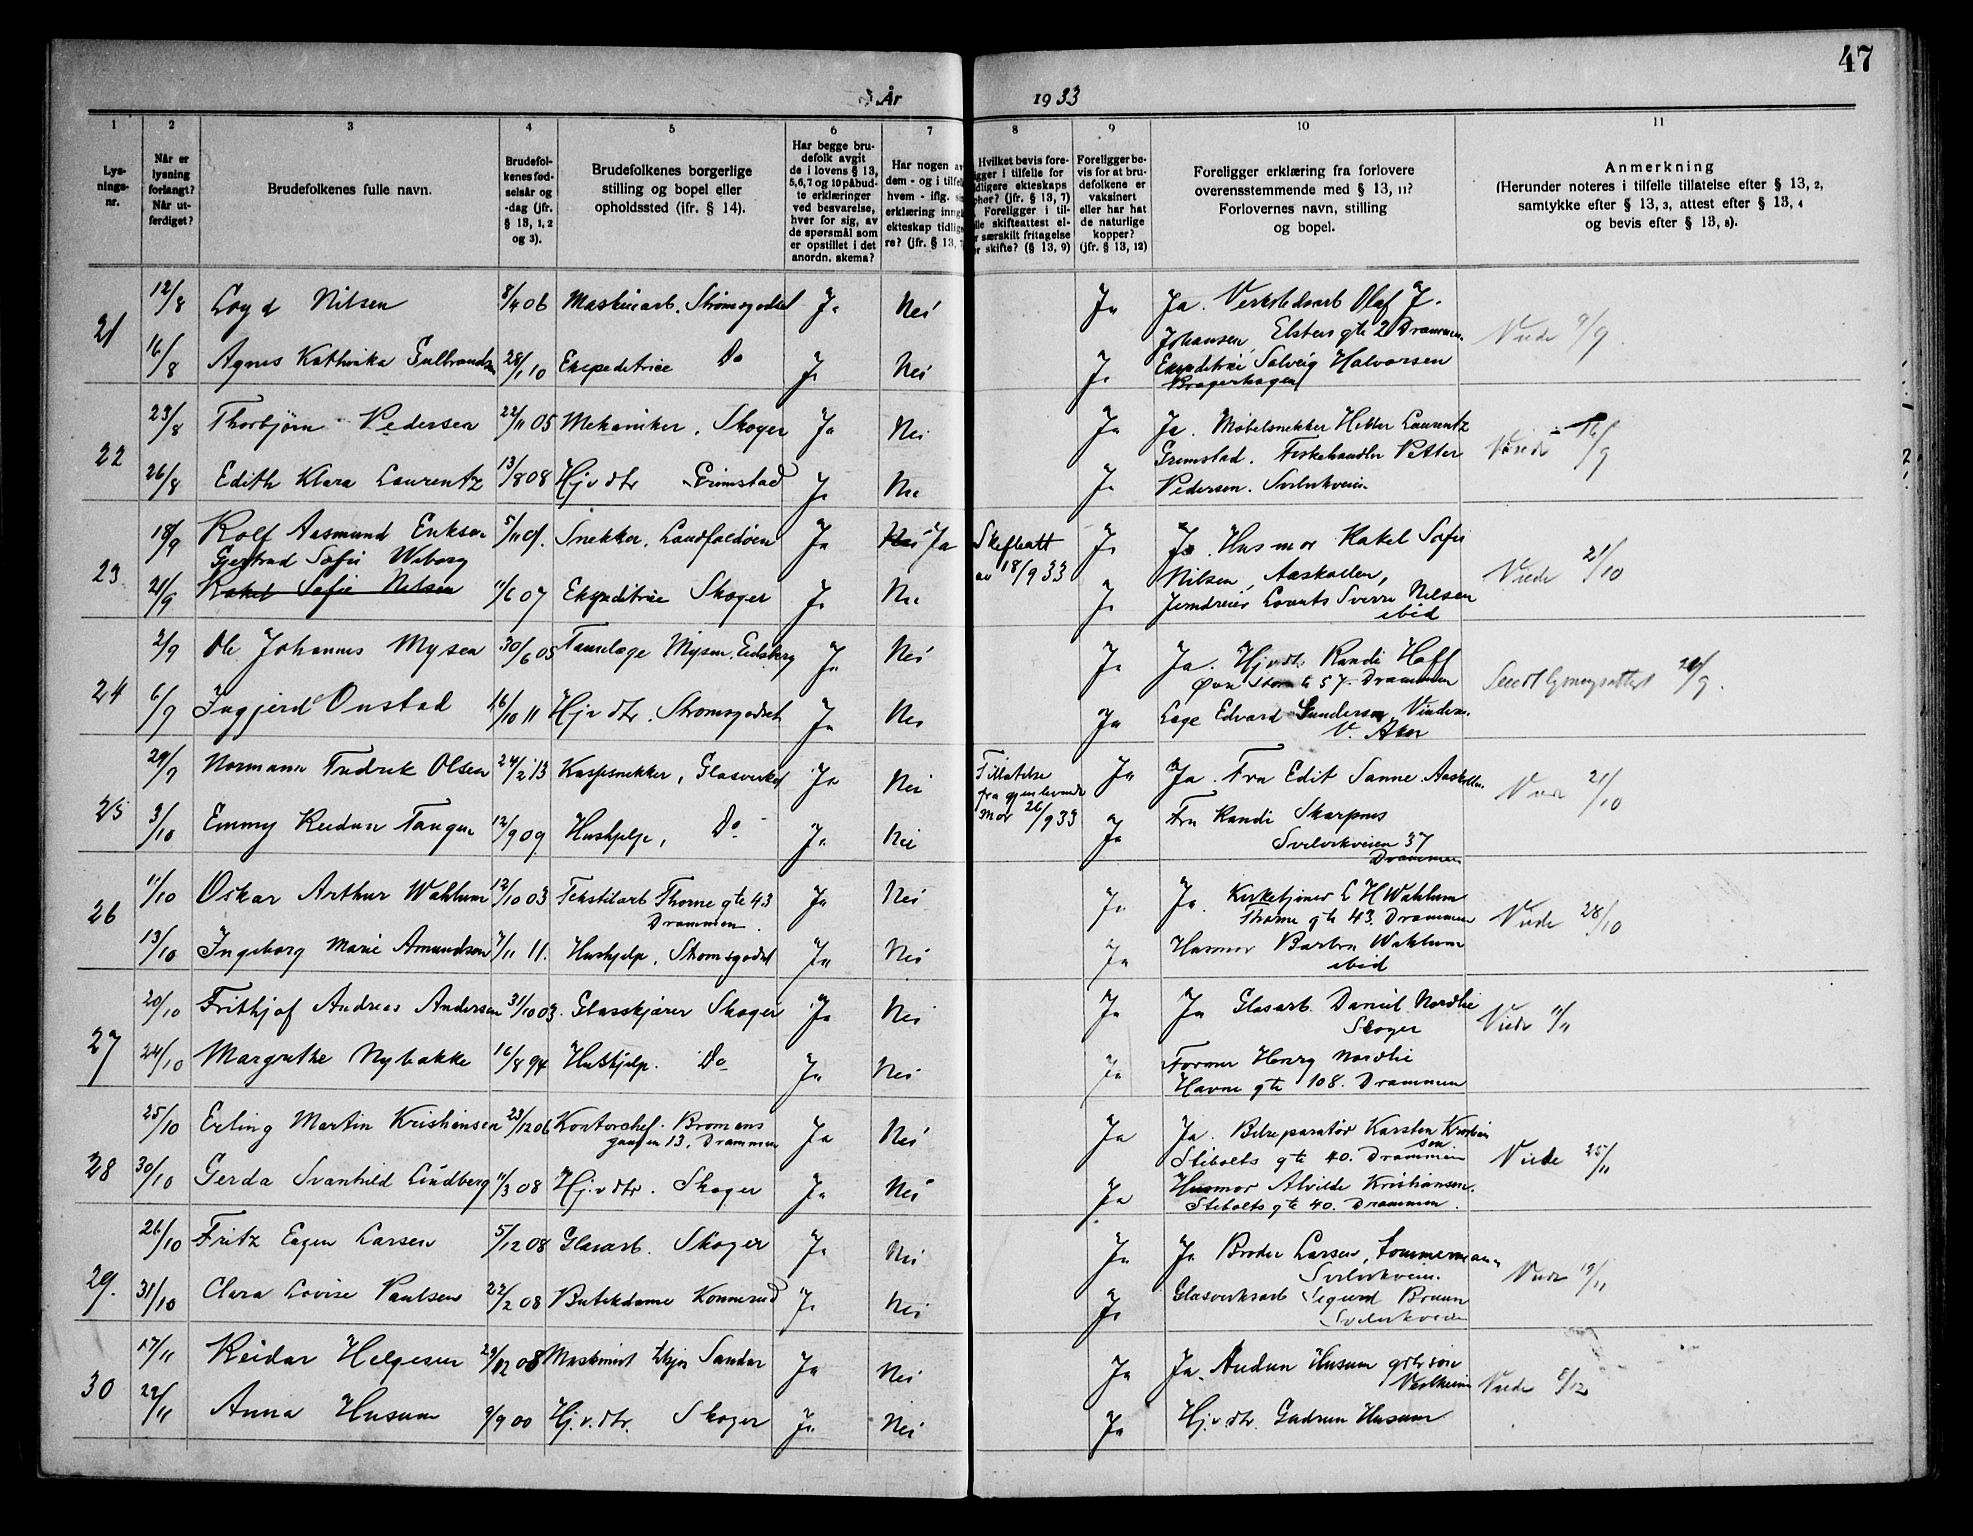 47
År 1933
1 2 3 4 5 6 7 8 9 10 11
Lys-
nings-
nr.
Når er
lysning
forlangt?
Når ut-
ferdiget?
Brudefolkenes fulle navn.
Brudefol-
kenes fød-
selsår og
-dag (jfr.
§ 13, 1, 2
og 3).
Brudefolkenes borgerlige
stilling og bopel eller
opholdssted (jfr. § 14).
Har begge bru-
defolk avgit
de i lovens § 13,
5, 6, 7 og 10 påbud-
te erklæringer
ved besvarelse,
hver for sig, av
de spørsmål som
er opstillet i det
anordn. skema?
Har nogen av
dem - og i tilfelle
hvem - iflg.
erklæring inngå
ekteskap tidlige-
re? (jfr. § 13, 7
Hvilket bevis fore-
ligger i tilfelle for
tidligere ekteskaps
ophør? (jfr. § 13, 7)
Foreligger i til-
felle skifteattest el-
ler særskilt fritagelse
for skifte? (§ 13, 9)
Foreligger be-
vis for at bru-
defolkene er
vaksinert
eller har hat
de naturlige
kopper?
(jfr. § 13, 12)
Foreligger erklæring fra forlovere
overensstemmende med § 13, 11?
Forlovernes navn, stilling
og bopel.
Anmerkning
(Herunder noteres i tilfelle tillatelse efter § 13, 2,
samtykke efter § 13, 3, attest efter § 13, 4
og bevis efter § 13, 8).
21
12/8 Loyd Nilsen 8/4 06 Maskinarb. Strømsgodset Ja Nei Ja Ja. Verkstedsarb Olaf J.
Johansen, Elstens gte 2 Drammen. Viede 9/9
16/8 Agnes Kathinka Gulbrandsen 28/1 10 Ekspeditrice Do Ja Nei Ja Ekspeditrice Solveig Halvorsen
Bragerhagen
22
23/8 Thorbjørn Pedersen 22/11 05 Mekaniker, Skoger Ja Nei Ja Ja. Møbelsnekker Laurentz
Grimstad. Fiskehandler Petter Viede 16/9
26/8 Edith Klara Laurentz 13/8 08 Hj.v dtr Grimstad Ja Nei Ja Pedersen. Svelvikveien.
23
18/9 Rolf Aasmund Eriksen 5/11 01. Snekker, Landfaldøen Ja Nei Ja Skifteatt
av 18/9 33 Ja Ja. Husmor Rakel Sofie
Gjertrud Sofie Wiborg Nilsen, Aaskollen, Viede 21/10
21/9 Rakel Sofie Nilsen 11/6 07 Ekspeditrice Skoger Ja Nei Ja Jerndreier Sverre Nilsen
ibid
24
2/9 Ole Johannes Mysen 30/6 05 Tannlæge Mysen, Eidsberg Ja Nei Ja Ja. Hj.v dtr. Randi Hoff
Øvre Storgt 57. Drammen
6/9 Ingjerd Onstad 16/10 11 Hj.v dtr. Strømsgodset Ja Nei Ja Læge Edvard Gundersen, Vinderen.
V. Aker
25
29/9 Normann Fredrik Olsen 24/2 13 Kassesnekker, Glasverket Ja Nei Tillatelse
fra gjenlevende
mor 26/9 33 Ja Ja. Fru Edit Sanne. Aaskollen. Viede 21/10
3/10 Emmy Reidun Tangen 12/9 09 Hushjelp, Do Ja Nei Ja Fru Randi Skarpnes
Svelvikveien 37
Drammen
26
11/10 Oskar Arthur Wahlum 12/10 03 Tekstilarb Thorne gte 43
Drammen. Ja Nei Ja Ja. Kirketjener L H Wahlum
Thorne gte 43. Drammen Viede 28/10
13/10 Ingeborg Marie Amundsen 7/11 11. Hushjelp, Strømsgodset Ja Nei Ja Husmor Barbra Wahlum
ibid
27
20/10 Frithjof Andreas Andersen 31/10 03. Glasskjærer Skoger Ja Nei Ja Ja Glasarb. Daniel Nordlie
Skoger Viede 11/11
24/10 Margrethe Nybakke 16/8 94 Hushjelp. Do Ja Nei Ja Former Henry Nordlie
Havne gte 108. Drammen
28
25/10 Erling Martin Kristiansen 23/12 06 Kontorchef. Bromans
gangen 13. Drammen Ja Nei Ja Ja. Bilreparatør Karsten Kristian
sen.
Stibolts gte 40. Drammen Viede 25/11
30/10 Gerda Svanhild Lindberg 11/3 08 Hj.v dtr. Skoger Ja Nei Ja Husmor Alvilde Kristiansen.
Stibolts gte 40. Drammen.
29.
26/10 Fritz Eugen Larsen 5/12 08 Glasarb. Skoger Ja Nei Ja Ja Broder Larsen, Tommermann
Svelvikveien. Viede 19/11
31/10 Clara Lovise Paulsen 22/2 08 Butikdame Konnerud Ja Nei Ja Glasverksarb Sigurd Bruun
Svelvikveien
30
17/11 Reidar Helgesen 29/12 08 Maskinist Sandar Ja Nei Ja Ja. Audun Husum gbr.søn
Vestheim Viede 8/12
22/11 Anna Husum 9/9 00 Hj.v.dtr. Skoger Ja Nei Ja Hj.v dtr. Gudrun Husum